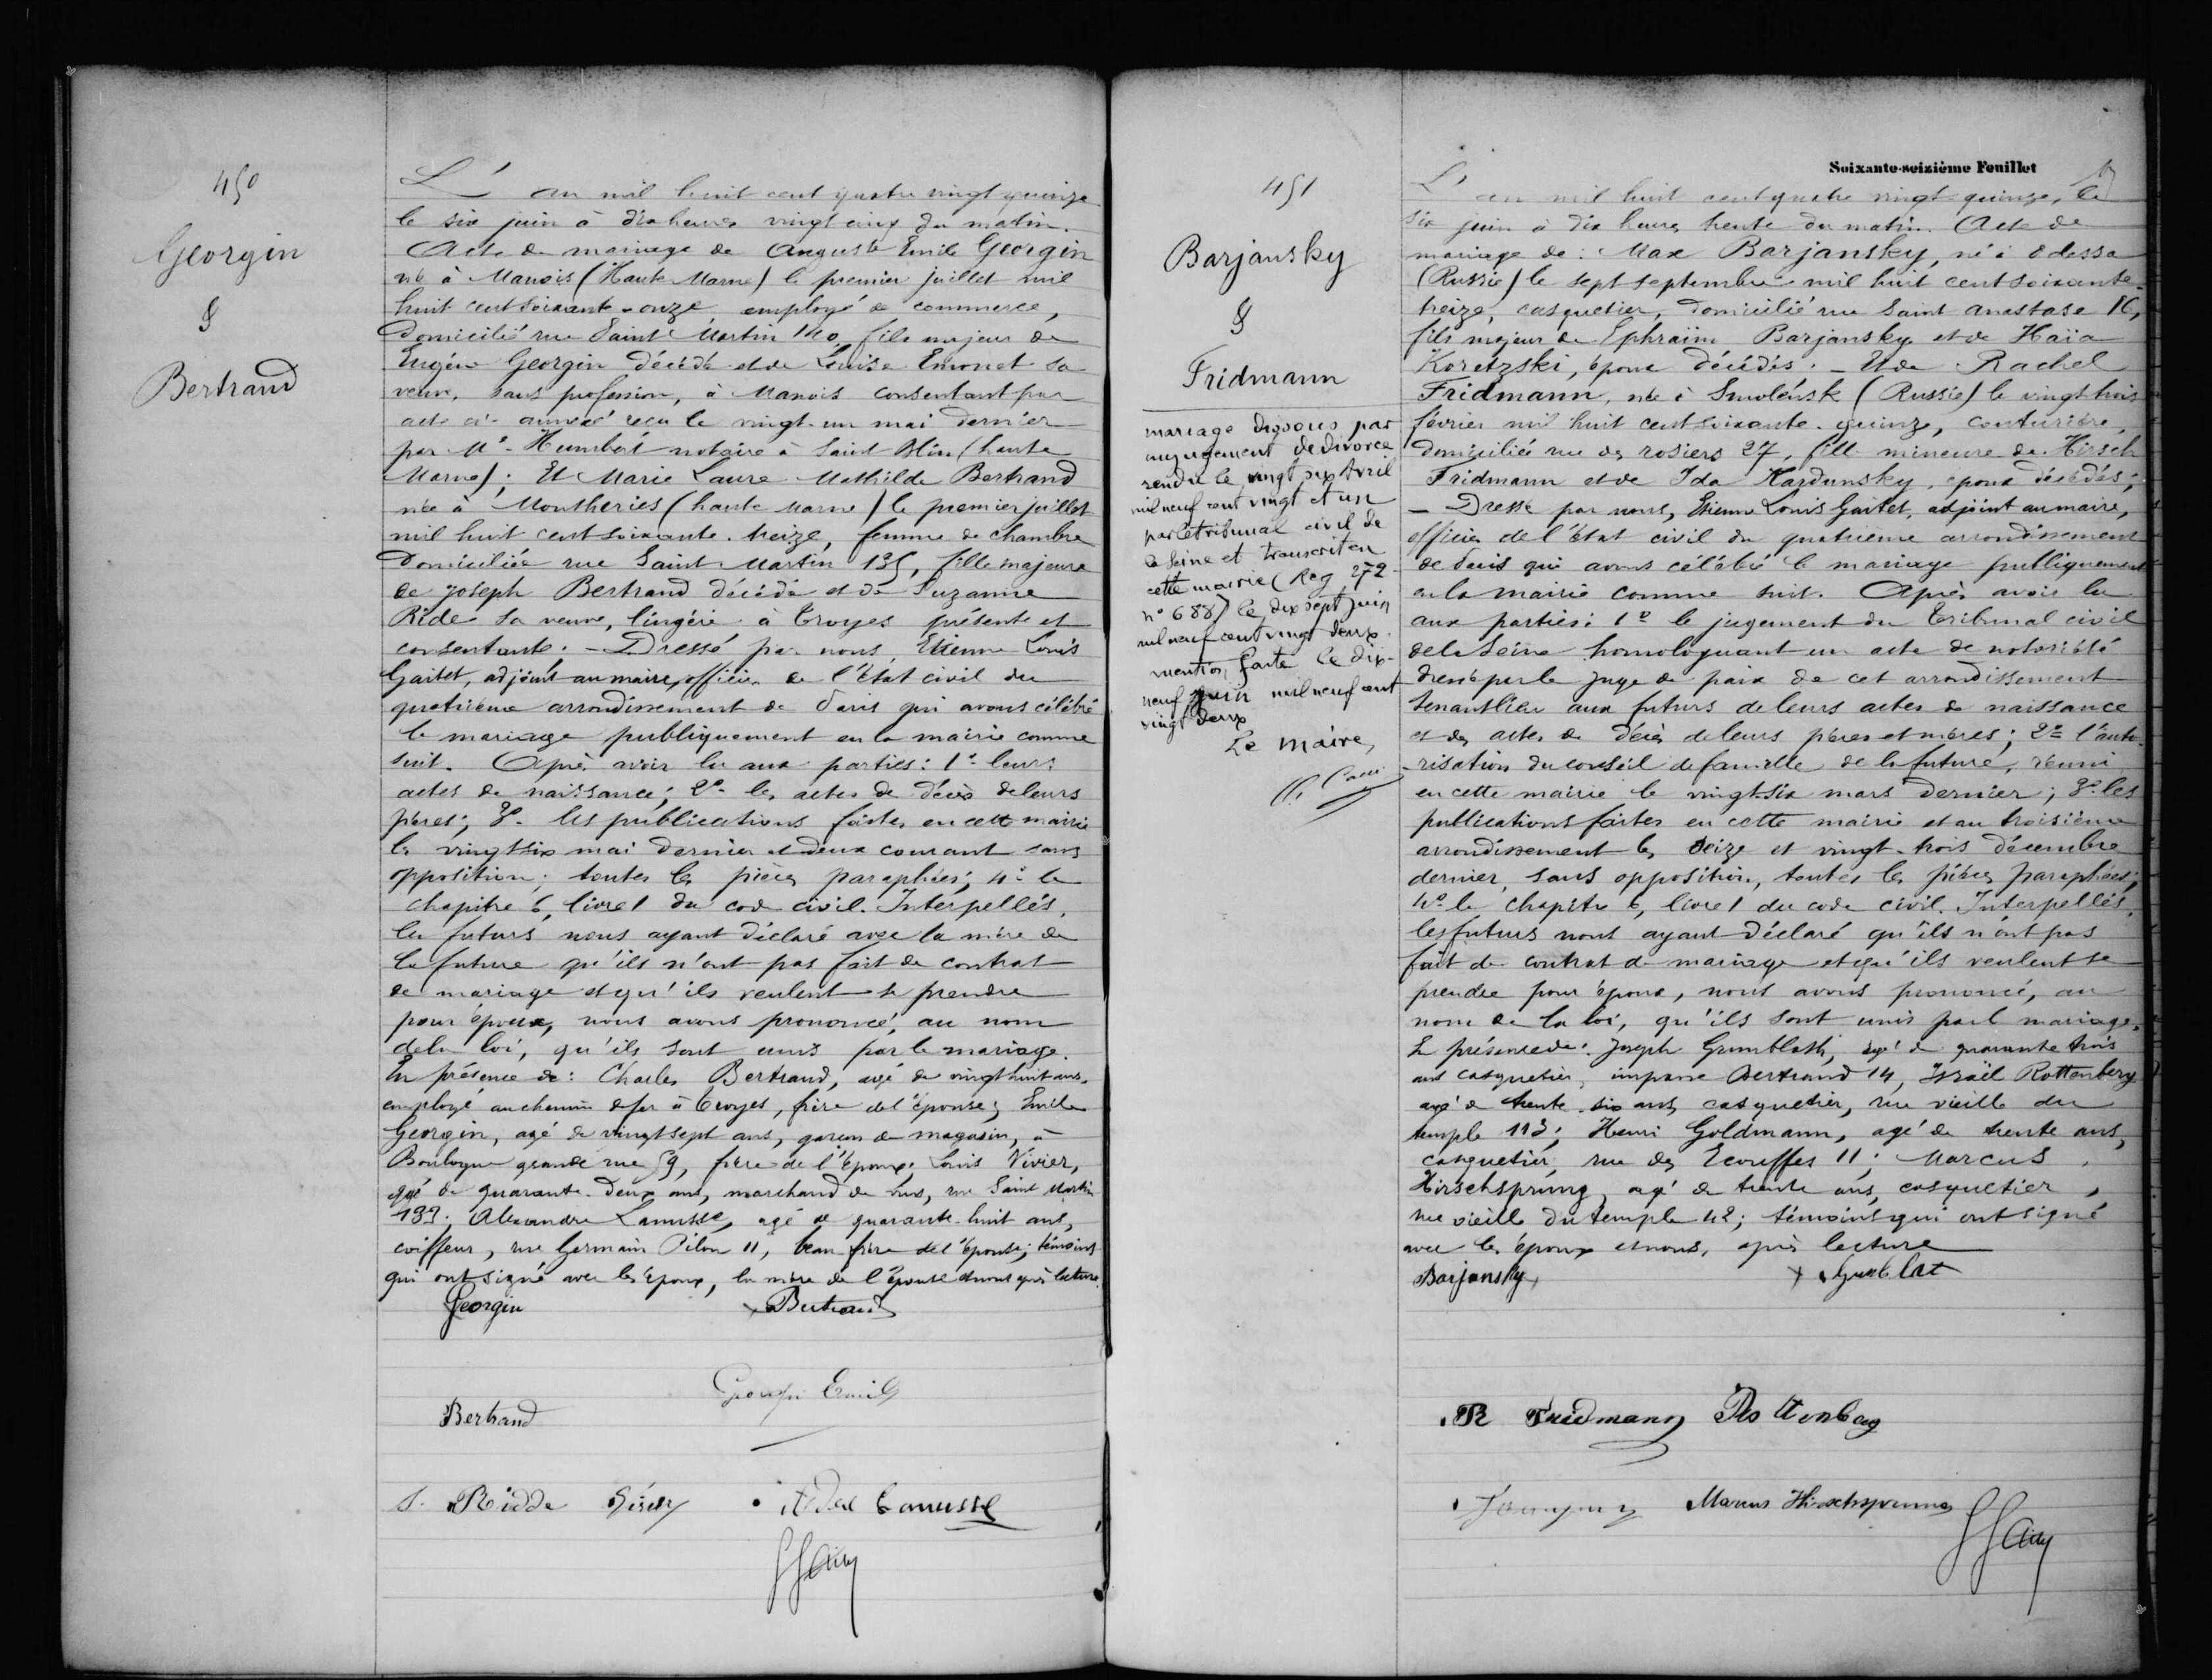 450
Georgin
&
Bertrand
L'an mil huit cent quatre vingt quinze
le six juin à dix heures vingt cinq du matin.
Acte de mariage de Auguste Emile Georgin
né à Manois (Haute Marne) le premier juillet mil
huit cent soixante-onze, employé de commerce,
domicilié rue Saint Martin 140, fils majeur de
Eugène Georgin décédé et de Louise Emonet sa
veuve, sans profession, à Manois consentant par
acte ci-annexé reçu le vingt-un mai dernier
par Me Humbert notaire à Saint Blin (haute
Marne); Et Marie Laure Mathilde Bertrand
née à Montheries (haute Marne) le premier juillet
mil huit cent soixante-treize, femme de chambre
domiciliée rue Saint Martin 135, fille majeure
de Joseph Bertrand décédé et de Suzanne
Ride sa veuve, lingère à Troyes présente et
consentante. - Dressé par nous, Etienne Louis
Gaitet, adjoint au maire, officier de l'état civil du
quatrième arrondissement de Paris qui avons célébré
le mariage publiquement en la mairie comme
suit. Après avoir lu aux parties: 1º leurs
actes de naissance; 2º les actes de décès de leurs
pères; 3º les publications faites en cette mairie
le vingt six mai dernier et deux courant sans
opposition; toutes les pièces paraphées; 4º le
chapitre 6, livre 1 du code civil. Interpellés,
les futurs nous ayant déclaré avec la mère de
la future qu'ils n'ont pas fait de contrat
de mariage et qu'ils veulent se prendre
pour époux, nous avons prononcé, au nom
de la loi, qu'ils sont unis par le mariage.
En présence de: Charles Bertrand, agé de vingt huit ans,
employé au chemin de fer à Troyes, frère de l'épouse; Emile
Georgin, agé de vingt sept ans, garçon de magasin, à
Boulogne grande rue 59, frère de l'époux; Louis Vivier,
agé de quarante-deux ans, marchand de vins, rue Saint Martin
139; Alexandre Lanusse, agé de quarante-huit ans,
coiffeur, rue Germain Pilon 11, beau frère de l'épouse; témoins
qui ont signé avec les époux, la mère de l'épouse et nous après lecture.
Georgin Bertrand
Georgin Emile
Bertrand
S. Ridde Lanusse
451
Barjansky
&
Fridmann
mariage dissous par
jugement de divorce
rendu le vingt six Avril
mil neuf cent vingt et un
par le tribunal civil de
la Seine et transcrit en
cette mairie (Reg 272
nº 688) le dix sept juin
mil neuf cent vingt deux.
mention faite le dix-
neuf juin mil neuf cent
vingt deux
Le maire,
Soixante-seizième Feuillet
L'an mil huit cent quatre vingt quinze, le
six juin à dix heures trente du matin. Acte de
mariage de: Max Barjansky, né à Odessa
(Russie) le sept septembre mil huit cent soixante-
treize, casquetier, domicilié rue Saint Anastase 16,
fils majeur de Ephraïm Barjansky et de Haïa
Koretzski, époux décédés. - Et de Rachel
Fridmann, née à Smolénsk (Russie) le vingt trois
février mil huit cent soixante-quinze, couturière,
domiciliée rue des rosiers 27, fille mineure de Hirsch
Fridmann et de Ida Kardunsky, époux décédés;
- Dressé par nous, Etienne Louis Gaitet, adjoint au maire,
officier de l'état civil du quatrième arrondissement
de Paris qui avons célébré le mariage publiquement
en la mairie comme suit. Après avoir lu
aux parties: 1º le jugement du tribunal civil
de la Seine homologuant un acte de notoriété
dressé par le juge de paix de cet arrondissement
tenant lieu aux futurs de leurs actes de naissance
et des actes de décès de leurs pères et mères; 2º l'auto-
risation du conseil de famille de la future, réuni
en cette mairie le vingt-six mars dernier; 3º les
publications faites en cette mairie et au troisième
arrondissement les seize et vingt-trois décembre
dernier, sans opposition, toutes les pièces paraphées;
4º le chapitre 6, livre 1 du code civil. Interpellés,
les futurs nous ayant déclaré qu'ils n'ont pas
fait de contrat de mariage et qu'ils veulent se
prendre pour époux, nous avons prononcé, au
nom de la loi, qu'ils sont unis par le mariage.
En présence de: Joseph Grunblath, agé de quarante trois
ans casquetier, impasse Bertrand 14, Israël Rottenberg
agé de trente-six ans, casquetier, rue vieille du
temple 113; Henri Goldmann, agé de trente ans,
casquetier, rue des Ecouffes 11; Marcus
Hirschsprung, agé de trente ans, casquetier,
rue vieille du temple 42; témoins qui ont signé
avec les époux et nous, après lecture
Barjansky
R Fridmann Rottenberg
Marcus Hirschsprung